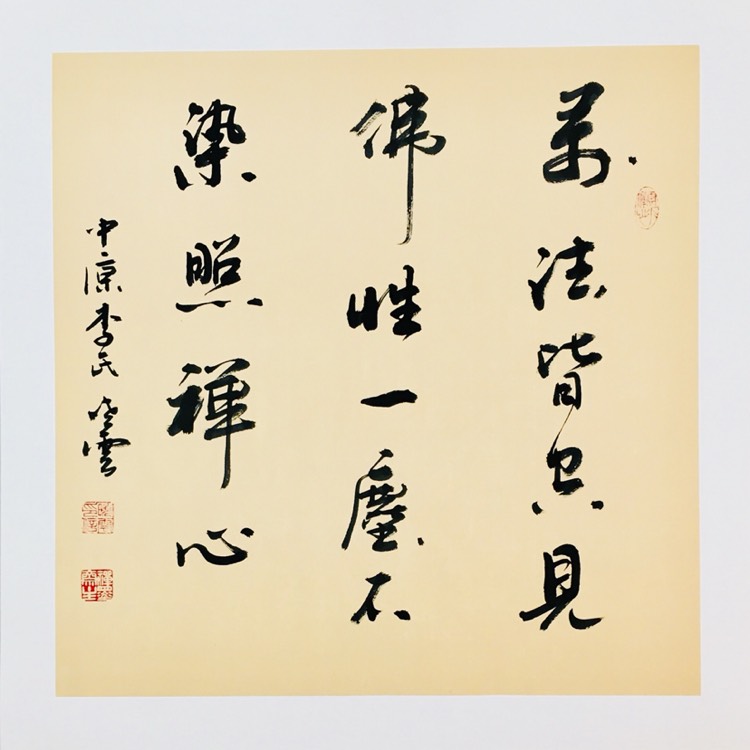 萬法皆空見
佛性一塵不
染照禪心
中原李氏曉雲